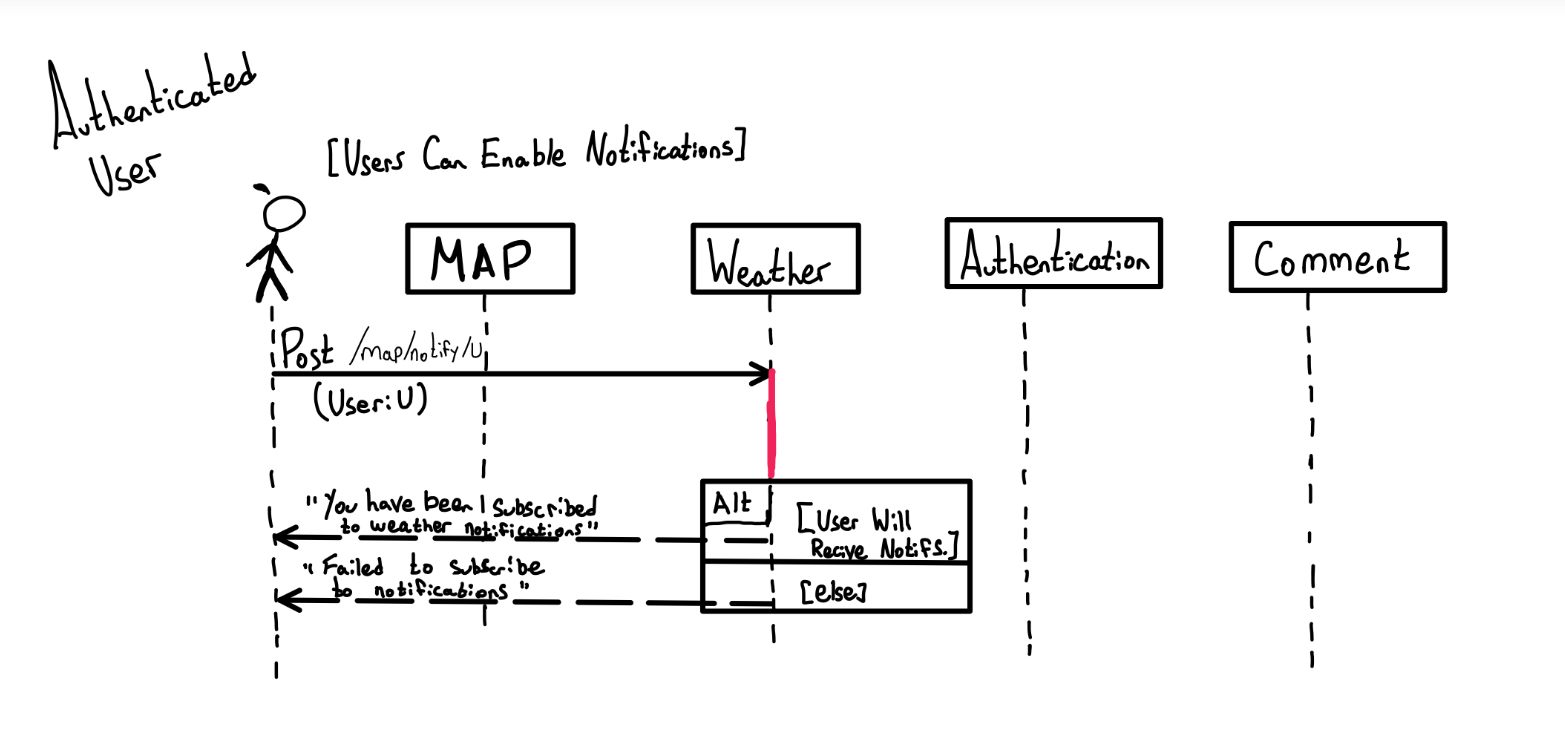 Authenticated
User
[Users Can Enable Notifications]
MAP
Weather
Authentication
Comment
Post /map/notify/U
(User:U)
Alt
[User Will
Recive Notifs.]
"You have been subscribed
to weather notifications"
[else]
"Failed to subscribe
to notifications"